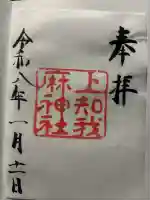 奉拝
上知我
麻神社
令和八年一月十二日